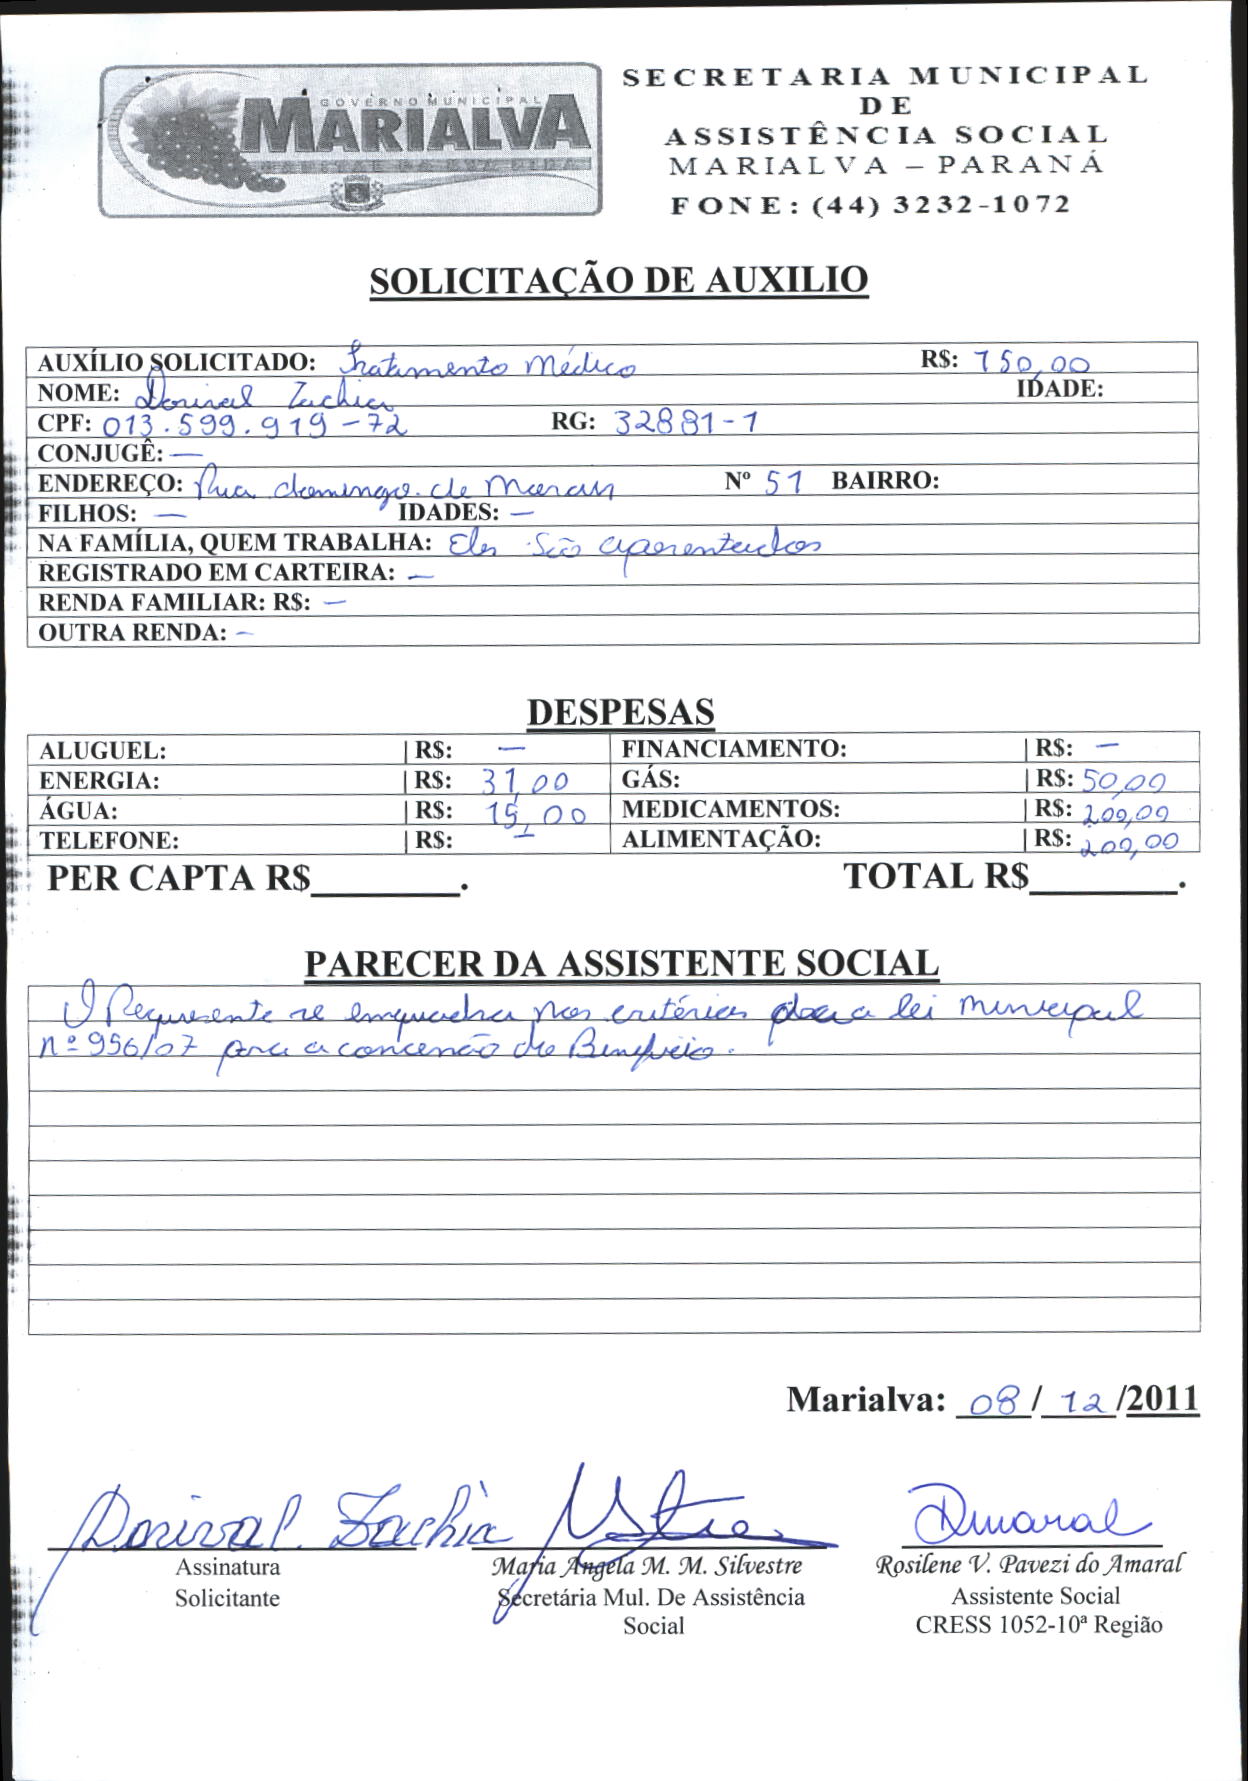 GOVERNO MUNICIPAL
MARIALVA
CAPITAL DA UVA FINA
SECRETARIA MUNICIPAL
DE
ASSISTÊNCIA SOCIAL
MARIALVA – PARANÁ
FONE: (44) 3232-1072
SOLICITAÇÃO DE AUXILIO
AUXÍLIO SOLICITADO: Tratamento Médico R$: 750,00
NOME: Dorival Zachia IDADE:
CPF: 013.599.919-72 RG: 32881-1
CONJUGÊ: —
ENDEREÇO: Rua domingo de Nº 51 BAIRRO:
FILHOS: — IDADES: —
NA FAMÍLIA, QUEM TRABALHA: Eles São aposentados
REGISTRADO EM CARTEIRA: —
RENDA FAMILIAR: R$: —
OUTRA RENDA: –
DESPESAS
ALUGUEL: | R$: — FINANCIAMENTO: | R$: —
ENERGIA: | R$: 31,00 GÁS: | R$: 50,00
ÁGUA: | R$: 15,00 MEDICAMENTOS: | R$: 200,00
TELEFONE: | R$: — ALIMENTAÇÃO: | R$: 200,00
PER CAPTA R$________. TOTAL R$________.
PARECER DA ASSISTENTE SOCIAL
O Requerente se enquadra nos critérios da lei Municipal
nº 956/07 para a concessão do Benefício.
Marialva: 08/12/2011
Dorival Zachia
Amaral
Assinatura
Solicitante
Maria Angela M. M. Silvestre
Secretária Mul. De Assistência
Social
Rosilene V. Pavezi do Amaral
Assistente Social
CRESS 1052-10ª Região